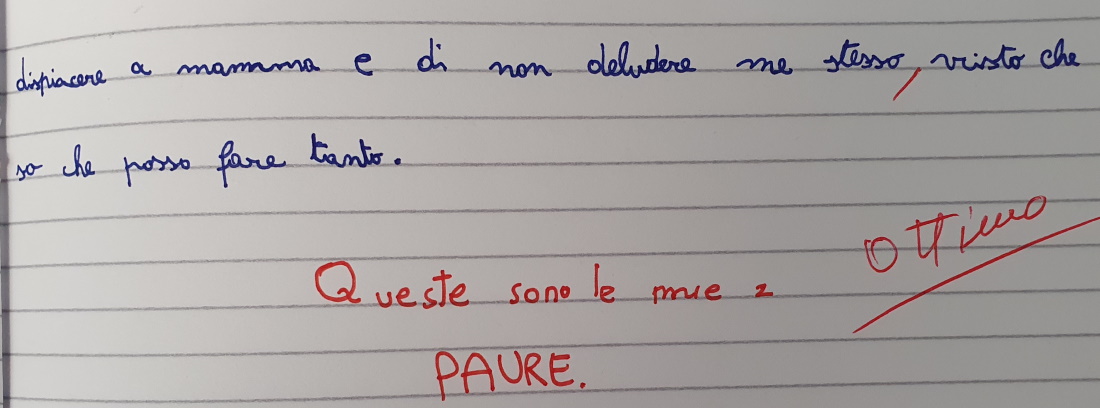 dispiacere a mamma e di non deludere me stesso, visto che
so che posso fare tanto.
Ottimo
Queste sono le mie 2
PAURE.